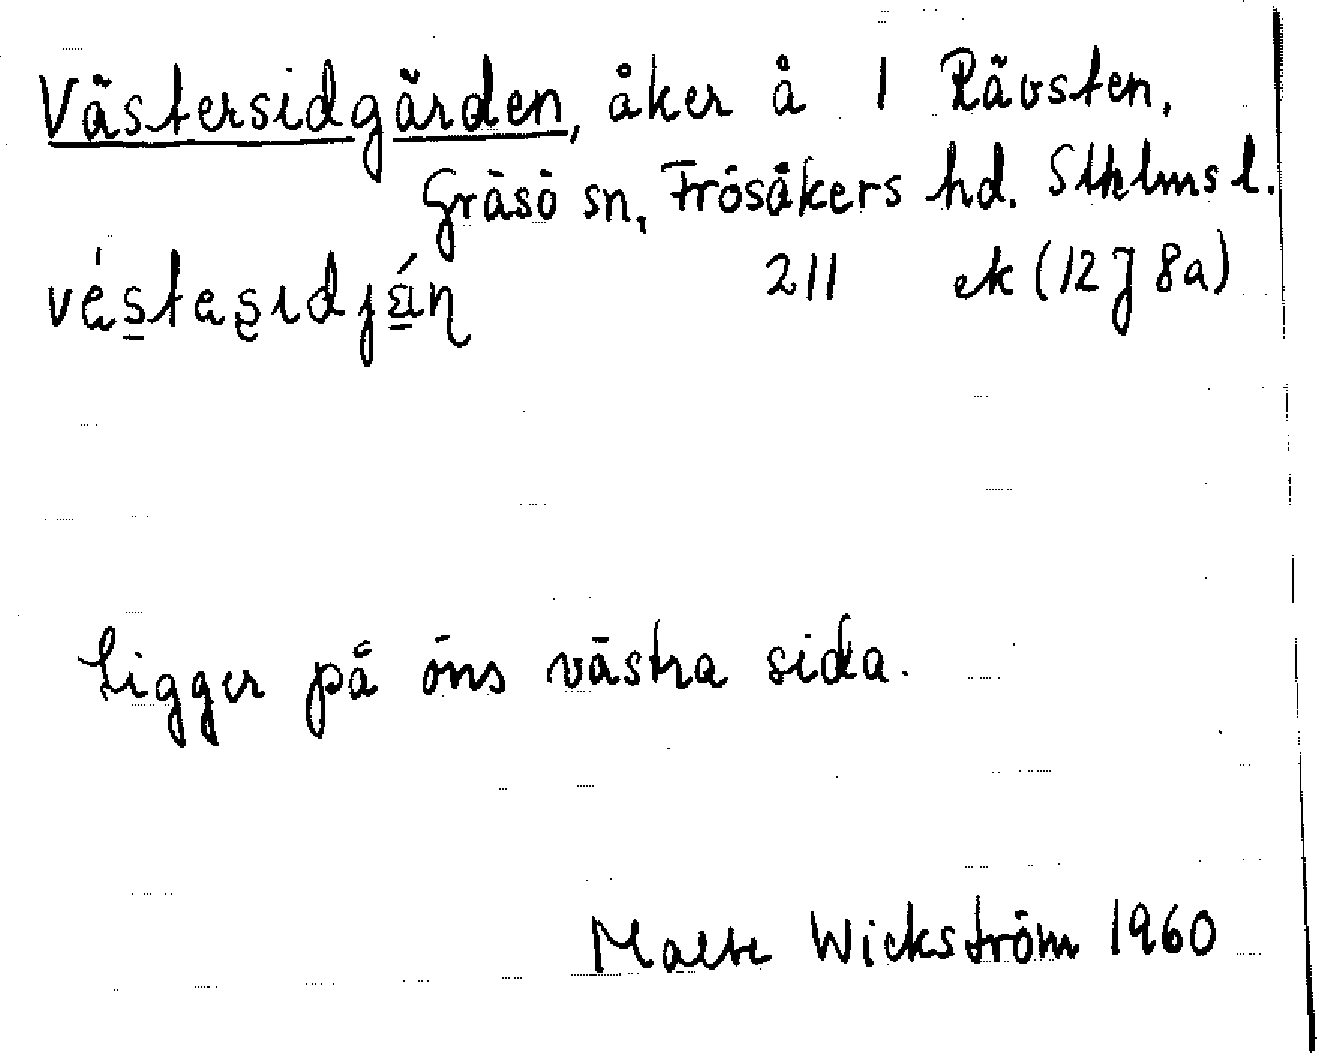 Västersidgärden, åker å 1 Rävsten,
Gräsö sn, Frösåkers hd. Sthlms l.
211 ek (12J 8a)
Ligger på öns västra sida.
Malte Wickström 1960